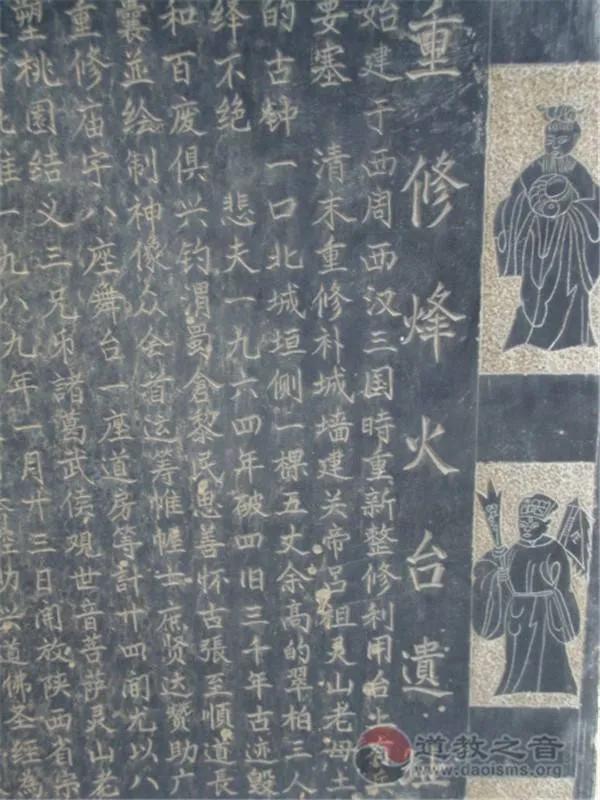 重修烽火台遺
始建于西周西汉三国時重新整修利用台上
要塞 清末重修补城墙建关帝吕祖灵山老母土
的古钟一口北城垣侧一棵五丈余高的翠柏三人
绎不绝 悲夫一九六四年破四旧三千年古迹毁
和百废俱兴钓渭蜀仓黎民思善怀古張至順道長
囊並绘制神像众会首运筹帷幄士庶贤达赞助广
重修庙宇八座舞台一座道房等計廿四间尤以八
塑桃園结义三兄弟諸葛武侯观世音菩萨灵山老
一九八九年一月廿三日開放陕西省宗
功兴道佛圣经為
道教之音
www.daoisms.org